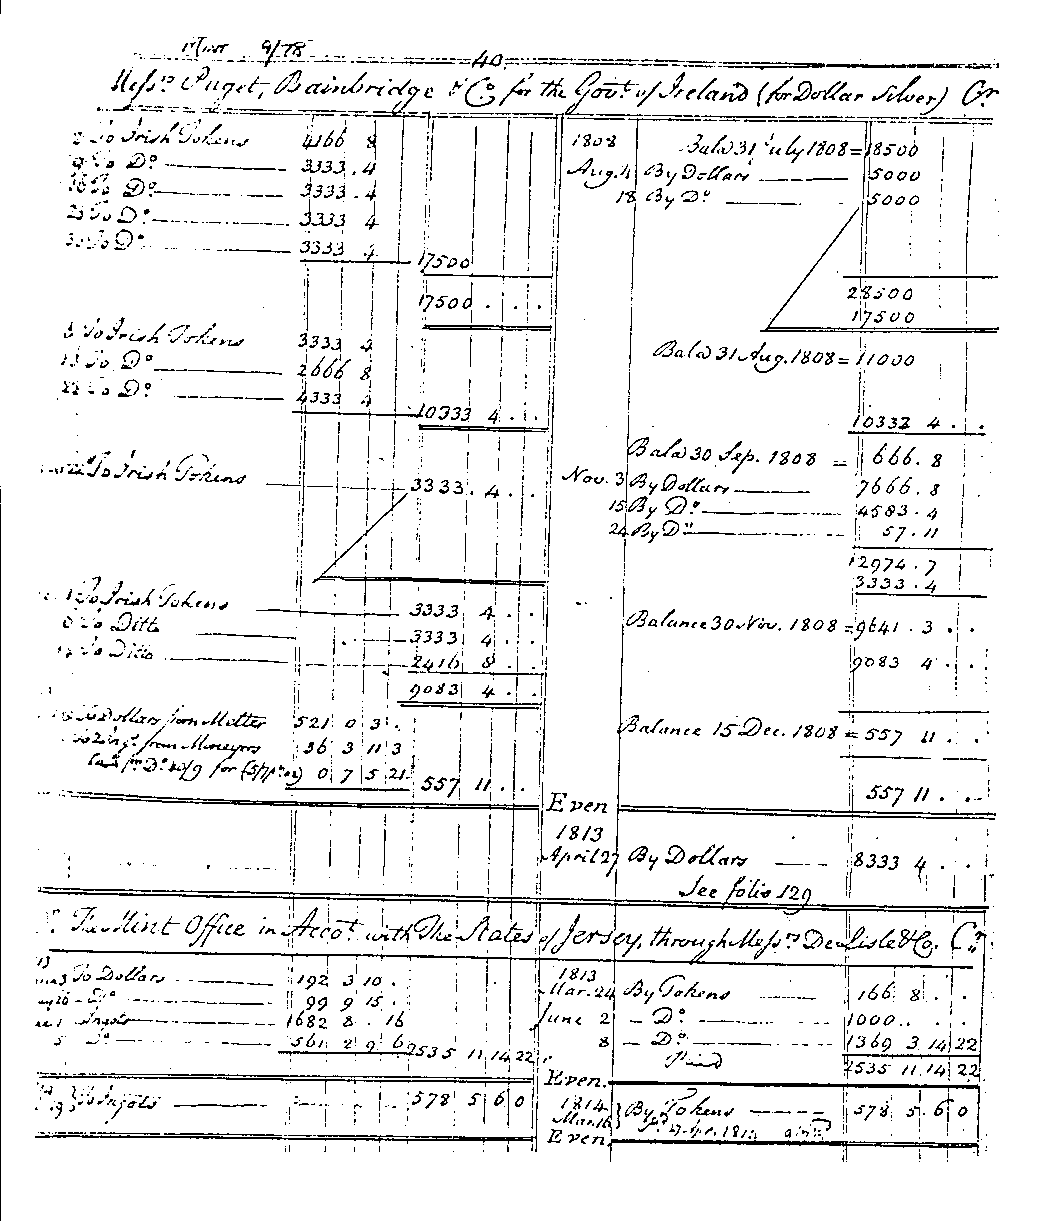 Mint 9/78
40.
Messrs. Puget, Bainbridge & Co. for the Govt. of Ireland (for Dollar Silver) Cr
2 To Irish Tokens 4166 8
9 To Do. 3333 . 4
16 To Do. 3333 . 4
23 To Do. 3333 4
30 To Do. 3333 4 17500
17500 . . .
5 To Irish Tokens 3333 4
13 To Do. 2666 8
22 To Do. 4333 4 10333 4 . .
To Irish Tokens 3333 . 4 . .
1 To Irish Tokens 3333 4 . .
8 To Ditto 3333 4 . .
To Ditto 2416 8 . .
9083 4 . .
To Dollars from Melter 521 0 3 .
from Moneyers 36 3 11 3
0 7 5 21 557 11 . .
1808 Balce 31 July 1808 = 18500
Aug. 4 By Dollars 5000
18 By Do. 5000
28500
17500
Balce 31 Aug. 1808 = 11000
10332 4 . .
Balce 30 Sep. 1808 = 666 . 8
Nov. 3 By Dollars 7666 . 8
15 By Do. 4583 . 4
24 By Do. 57 . 11
12974 . 7
3333 . 4
Balance 30 Nov. 1808 = 9641 . 3 . .
9083 4 . .
Balance 15 Dec. 1808 = 557 11 . .
Even 557 11 . .
1813
April 27 By Dollars 8333 4 . .
See folio 129
The Mint Office in Accot. with The States of Jersey, through Messrs. De Lisle & Co. Cr.
13
3 To Dollars 192 3 10 .
26 - Do. 99 9 15 .
1 Ingots 1682 8 . 16
5 Do. 561 2 9 6 2535 11 14 22
1813
Mar. 24 By Tokens 166 8 . .
June 2 - Do. 1000 . . .
8 - Do. 1369 3 14 22
Paid 2535 11 14 22
Even.
To Ingots 578 5 6 0
1814
Mar. 16 By Tokens 578 5 6 0
Even.